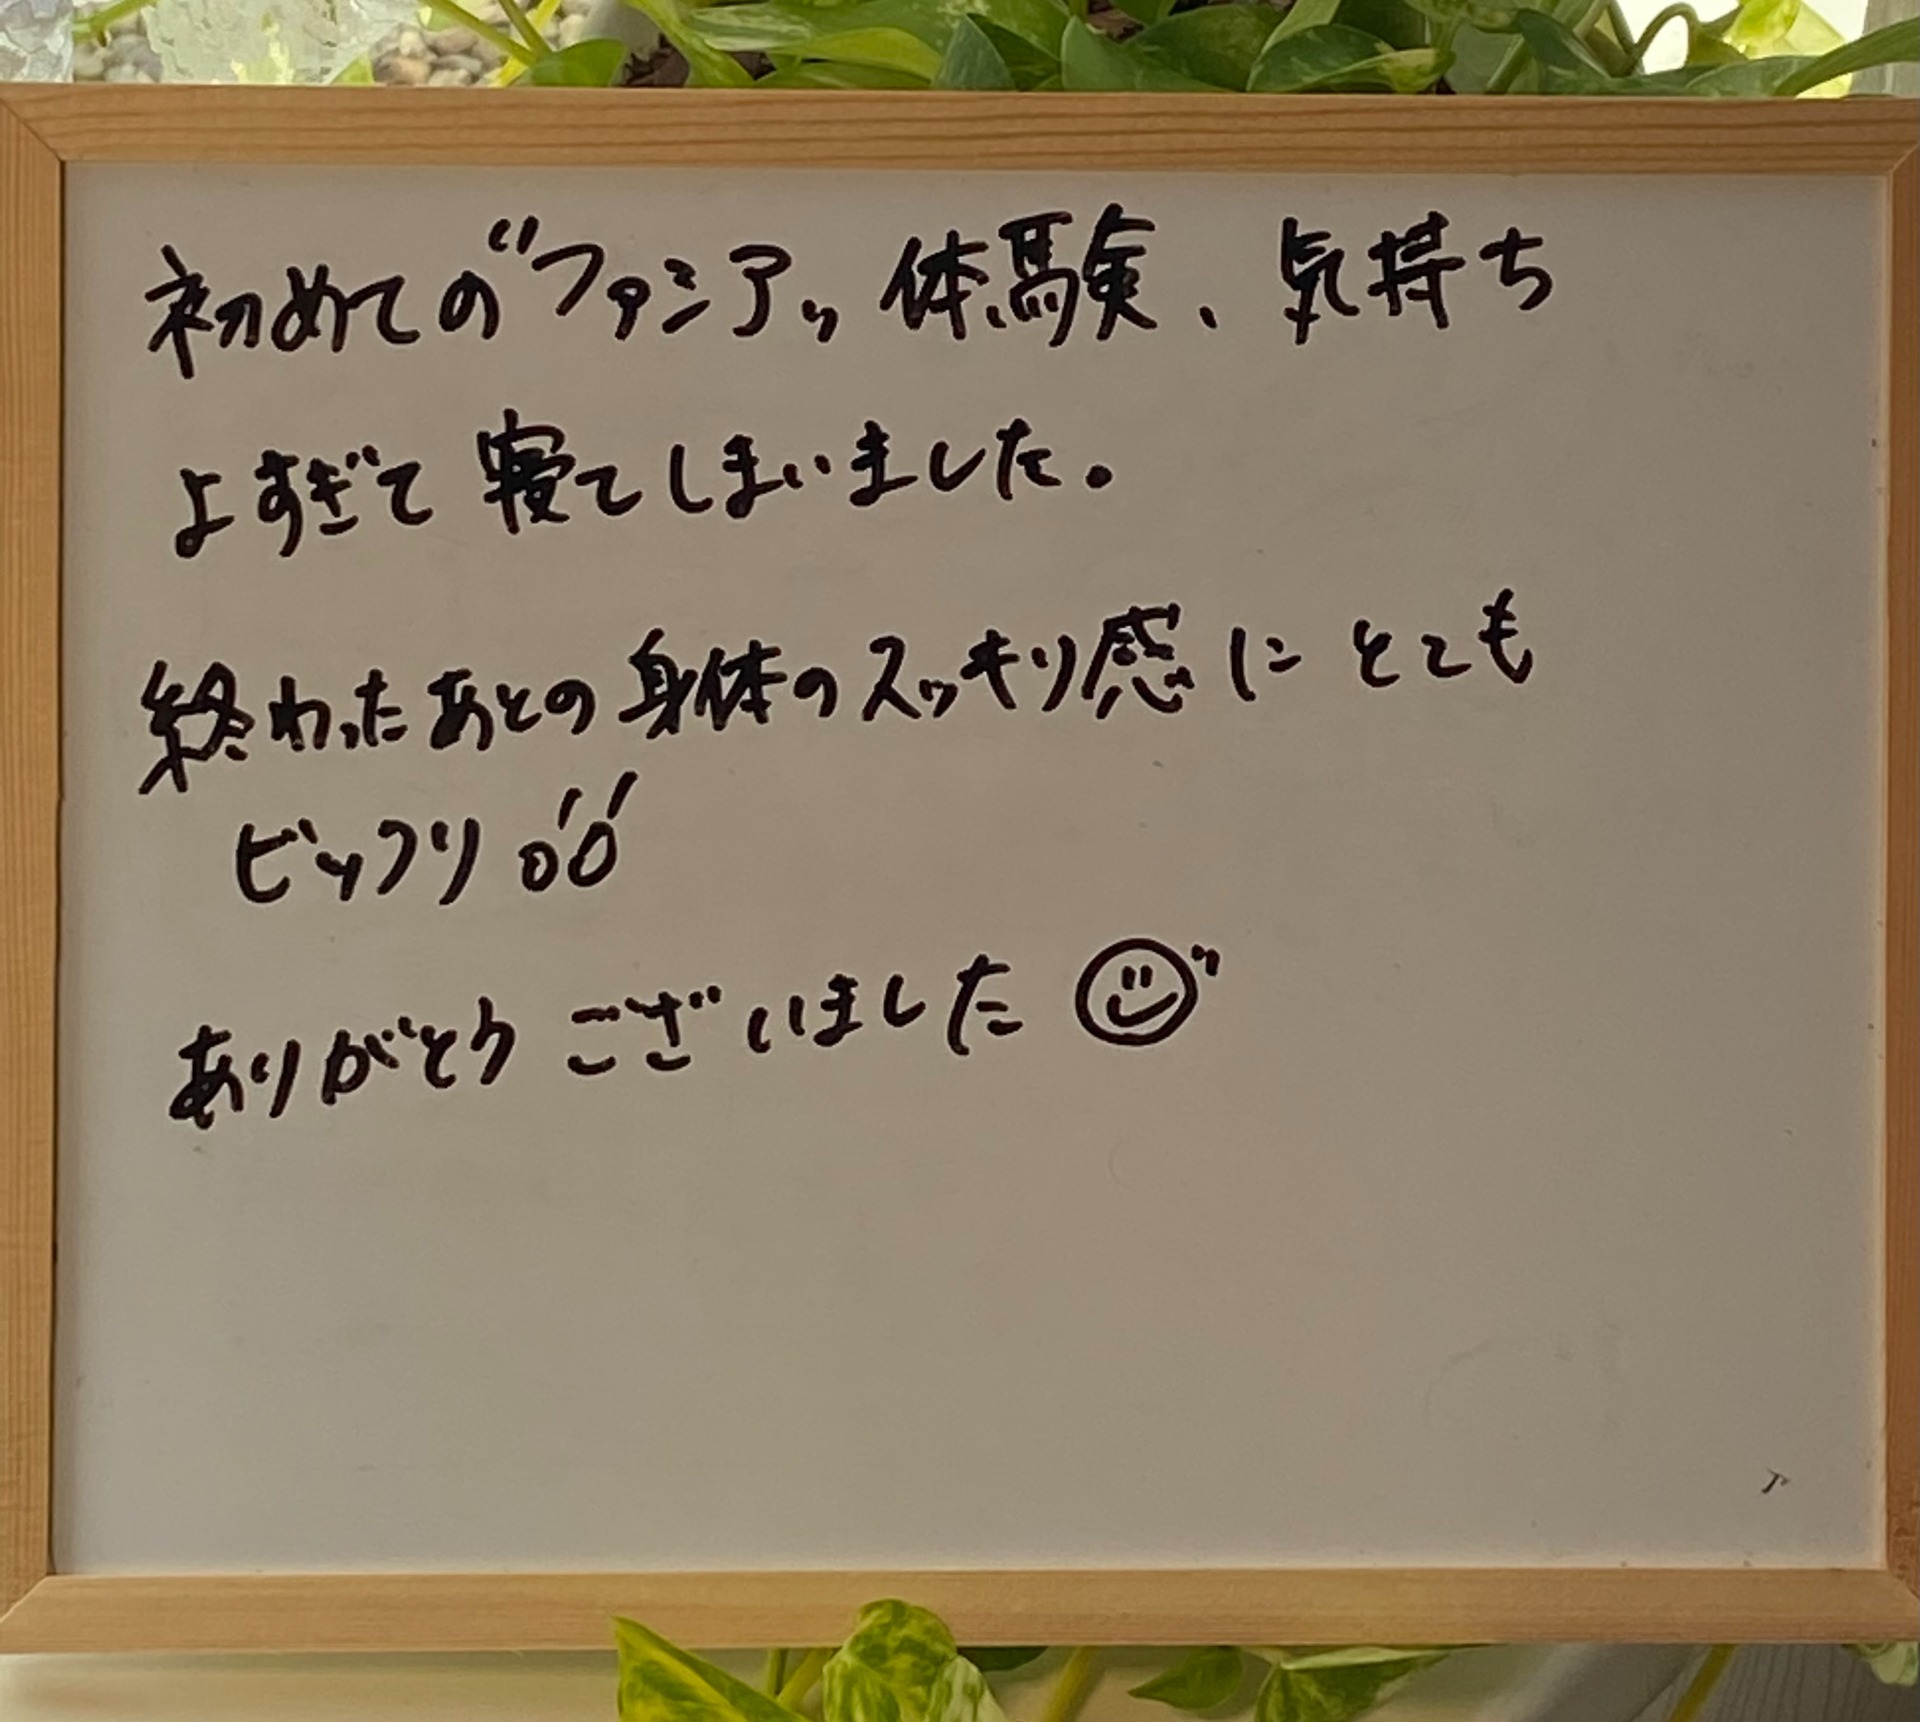 初めての"ファシア"体験、気持ち
よすぎて寝てしまいました。
終わったあとの身体のスッキリ感にとても
ビックリ!!
ありがとうございました